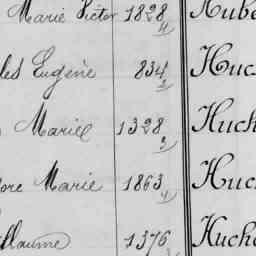 Marie Victor 1828 4 Hub
les Eugène 834 2 Huc
Marie 1328 3 Huch
ore Marie 1863 4 Huc
llaume 1376 Huch